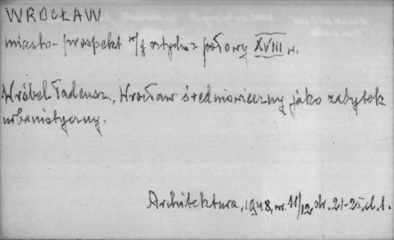 WROCŁAW
miasto - prospekt w/g sztychu z połowy XVIII w.
Wróbel Tadeusz, Wrocław średniowieczny jako zabytek
urbanistyczny.
Architektura, 1948, nr. 11/12, str. 21-25, il. 1.